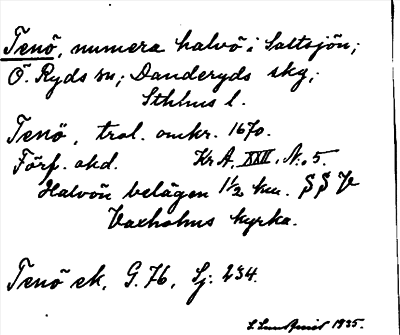 Tenö, numera halvö i Saltsjön;
Ö. Ryds sn; Danderyds skg;
Sthlms l.
Tenö, trol. omkr. 1670.
Förf. okd. Kr A, XXII, N:o 5.
Halvön belägen 1½ km. SSV
Vaxholms kyrka.
Tenö ek, G. 76, Sj. 234.
1935.